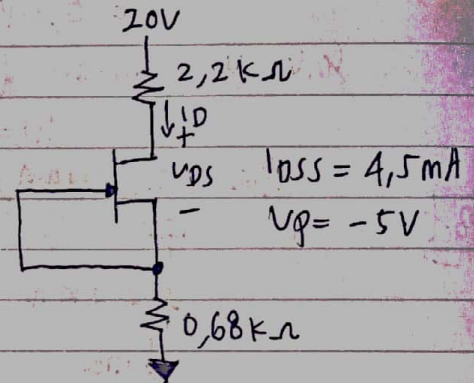 20V
2,2KΩ
↓iD
+
VDS
−
IDSS = 4,5mA
VP= -5V
0,68KΩ